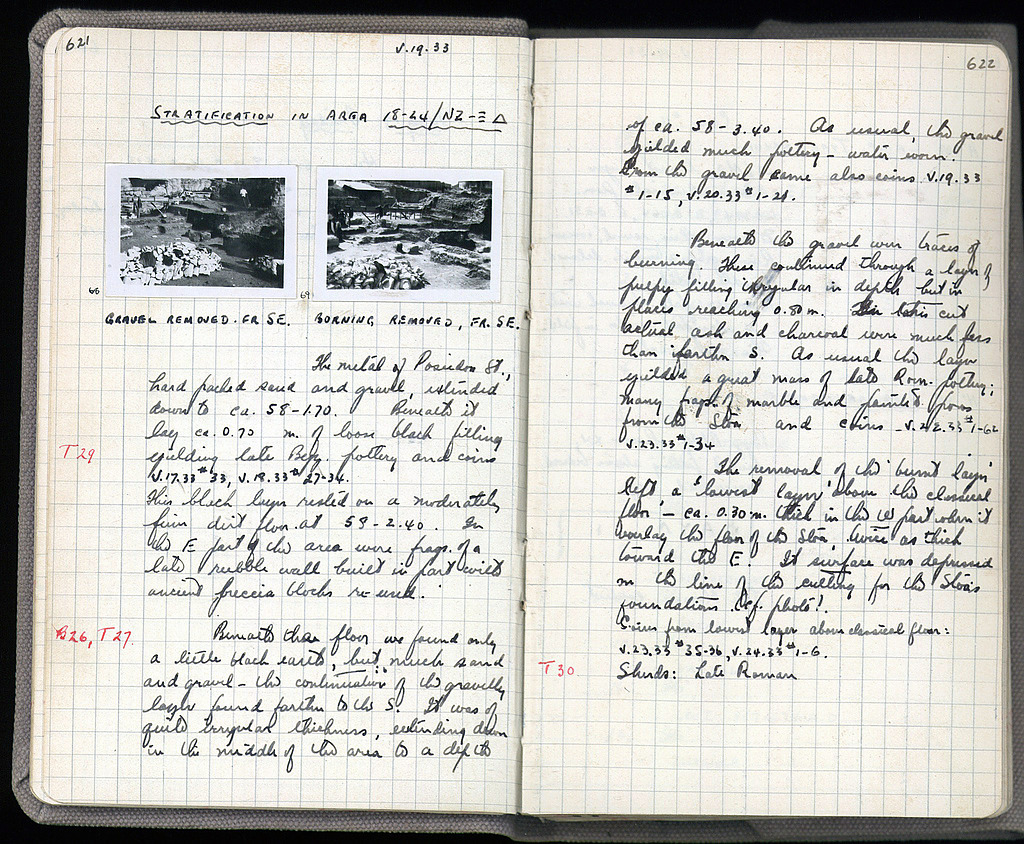 621
V.19.33
STRATIFICATION IN AREA 18-24/ΝΖ-ΞΔ
68
69
GRAVEL REMOVED. FR SE.
BURNING REMOVED, FR. SE.
The metal of Poseidon St.,
hard packed sand and gravel, extended
down to ca. 58-1.70. Beneath it
lay ca. 0.70 m. of loose black filling
T29
yielding late Byz. pottery and coins
V.17.33 #33, V.18.33 #27-34.
This black layer rested on a moderately
firm dirt floor at 58-2.40. In
the E part of the area were frags. of a
late rubble wall built in part with
ancient breccia blocks re-used.
B26, T27.
Beneath this floor we found only
a little black earth, but much sand
and gravel - the continuation of the gravelly
layer found farther to the S. It was of
quite irregular thickness, extending down
in the middle of the area to a depth
622
of ca. 58-3.40. As usual, the gravel
yielded much pottery - water worn.
From the gravel came also coins V.19.33
#1-15, V.20.33 #1-21.
Beneath the gravel were traces of
burning. These continued through a layer of
filling irregular in depth but in
places reaching 0.80 m. In this cut
actual ash and charcoal were much less
than farther S. As usual the layer
yielded a great mass of late Rom. pottery;
many frags. of marble and painted poros
from the Stoa and coins - V.22.33 #1-62
V.23.33 #1-34
The removal of the 'burnt layer'
left a 'lowest layer' above the classical
floor - ca. 0.30 m. thick in the W part where it
overlay the floor of the Stoa, twice as thick
toward the E. Its surface was depressed
on the line of the cutting for the Stoa's
foundations (cf. photo).
Coins from lowest layer above classical floor:
V.23.33 #35-36, V.24.33 #1-6.
T30
Sherds: Late Roman